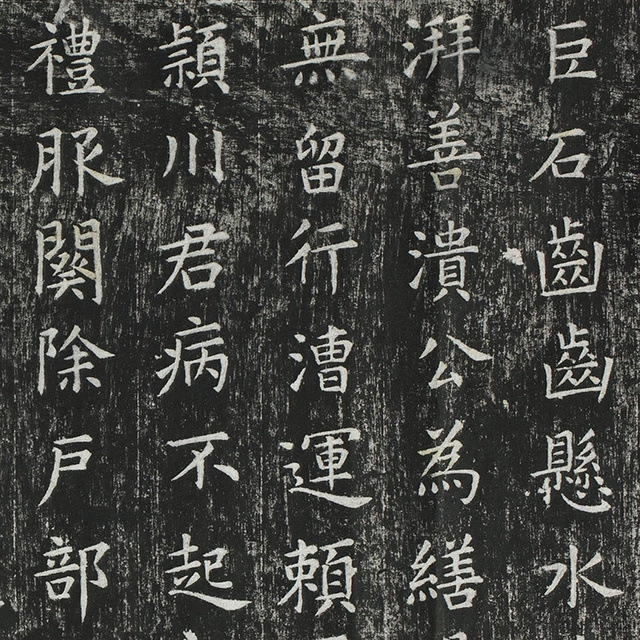 巨石齒齒懸水
湃善潰公為繕
無留行漕運賴
潁川君病不起
禮服闋除戶部